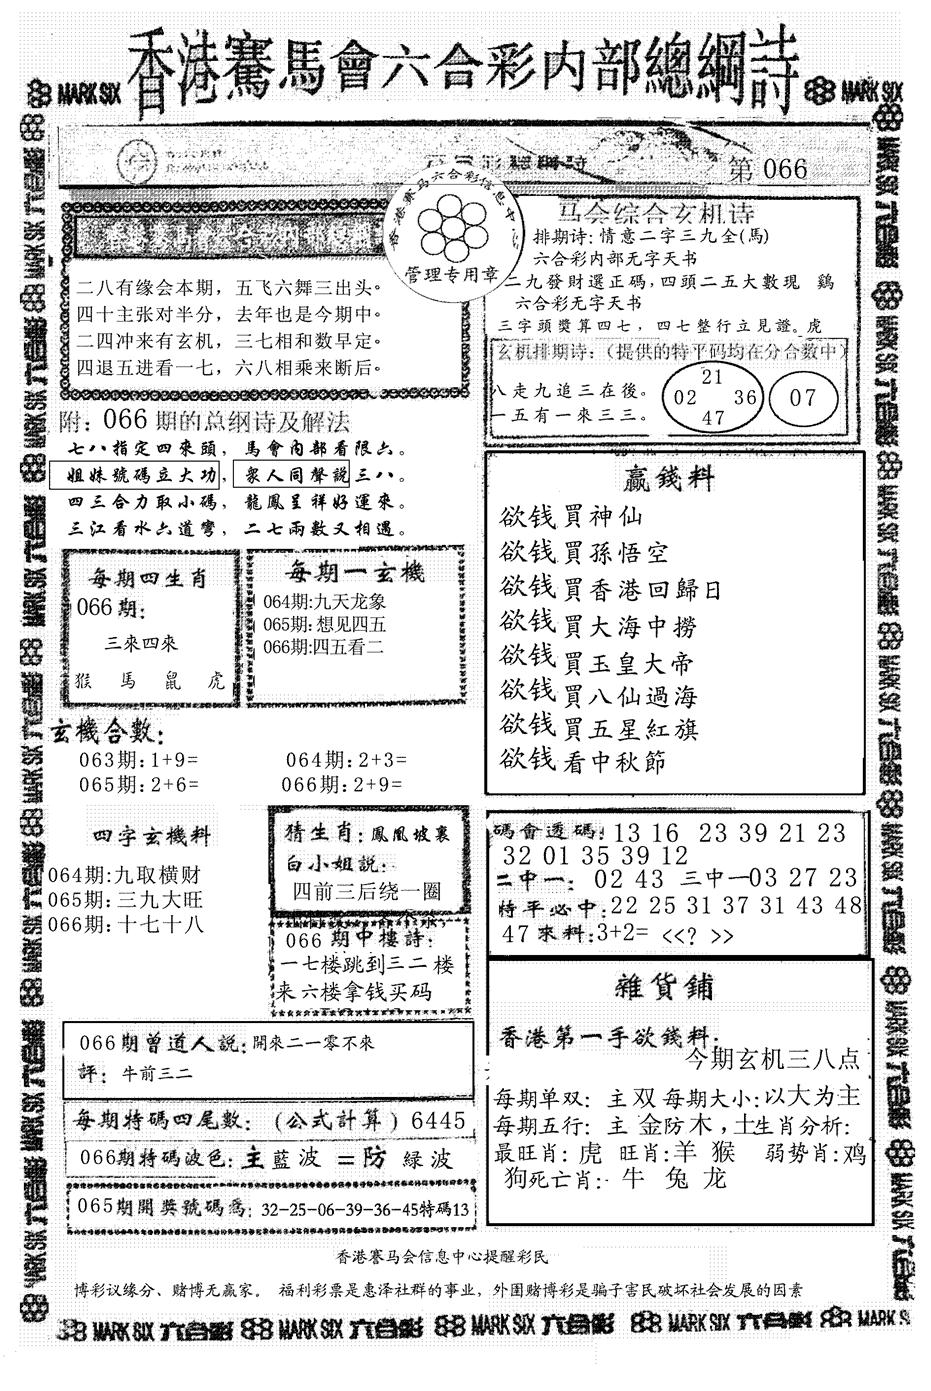 香港賽馬會六合彩内部總綱詩
MARK SIX
MARK SIX
第 066
香港赛马六合彩信息中心
管理专用章
二八有缘会本期，五飞六舞三出头。
四十主张对半分，去年也是今期中。
二四冲来有玄机，三七相和数早定。
四退五进看一七，六八相乘来断后。
马会综合玄机诗
排期诗: 情意二字三九全(馬)
六合彩内部无字天书
二九發財選正碼,四頭二五大數現 鷄
六合彩无字天书
三字頭獎算四七，四七整行立見證。虎
玄机排期诗:（提供的特平码均在分合数中）
八走九追三在後。
一五有一來三三。
21
02 36
47
07
附: 066 期的总纲诗及解法
七八指定四來頭，馬會內部看限六。
姐妹號碼立大功，衆人同聲説三八。
四三合力取小碼，龍鳳呈祥好運來。
三江看水六道彎，二七兩數又相遇。
每期四生肖
066期:
三來四來
猴 馬 鼠 虎
每期一玄機
064期:九天龙象
065期:想见四五
066期:四五看二
赢錢料
欲钱買神仙
欲钱買孫悟空
欲钱買香港回歸日
欲钱買大海中撈
欲钱買玉皇大帝
欲钱買八仙過海
欲钱買五星紅旗
欲钱看中秋節
玄機合數:
063期:1+9= 064期:2+3=
065期:2+6= 066期:2+9=
四字玄機料
064期:九取横财
065期:三九大旺
066期:十七十八
猜生肖:鳳凰坡裏
白小姐説:
四前三后绕一圈
066 期中樓詩:
一七楼跳到三二楼
来六楼拿钱买码
碼會透碼: 13 16 23 39 21 23
32 01 35 39 12
二中一: 02 43 三中一03 27 23
特平必中:22 25 31 37 31 43 48
47 來料:3+2= <<? >>
雜貨鋪
香港第一手欲錢料:
今期玄机三八点
每期单双: 主双 每期大小:以大为主
每期五行: 主 金防木，土生肖分析:
最旺肖: 虎 旺肖:羊 猴 弱势肖:鸡
狗死亡肖: 牛 兔 龙
066期曾道人説:開來二一零不來
評: 牛前三二
每期特碼四尾數:（公式計算）6445
066期特碼波色:主藍波 =防 緑波
065期開獎號碼爲: 32-25-06-39-36-45特碼13
香港賽马会信息中心提醒彩民
博彩议缘分、赌博无赢家。 福利彩票是惠泽社群的事业，外围赌博彩是骗子害民破坏社会发展的因素
MARK SIX 六合彩 MARK SIX 六合彩 MARK SIX 六合彩 MARK SIX 六合彩 MARK SIX